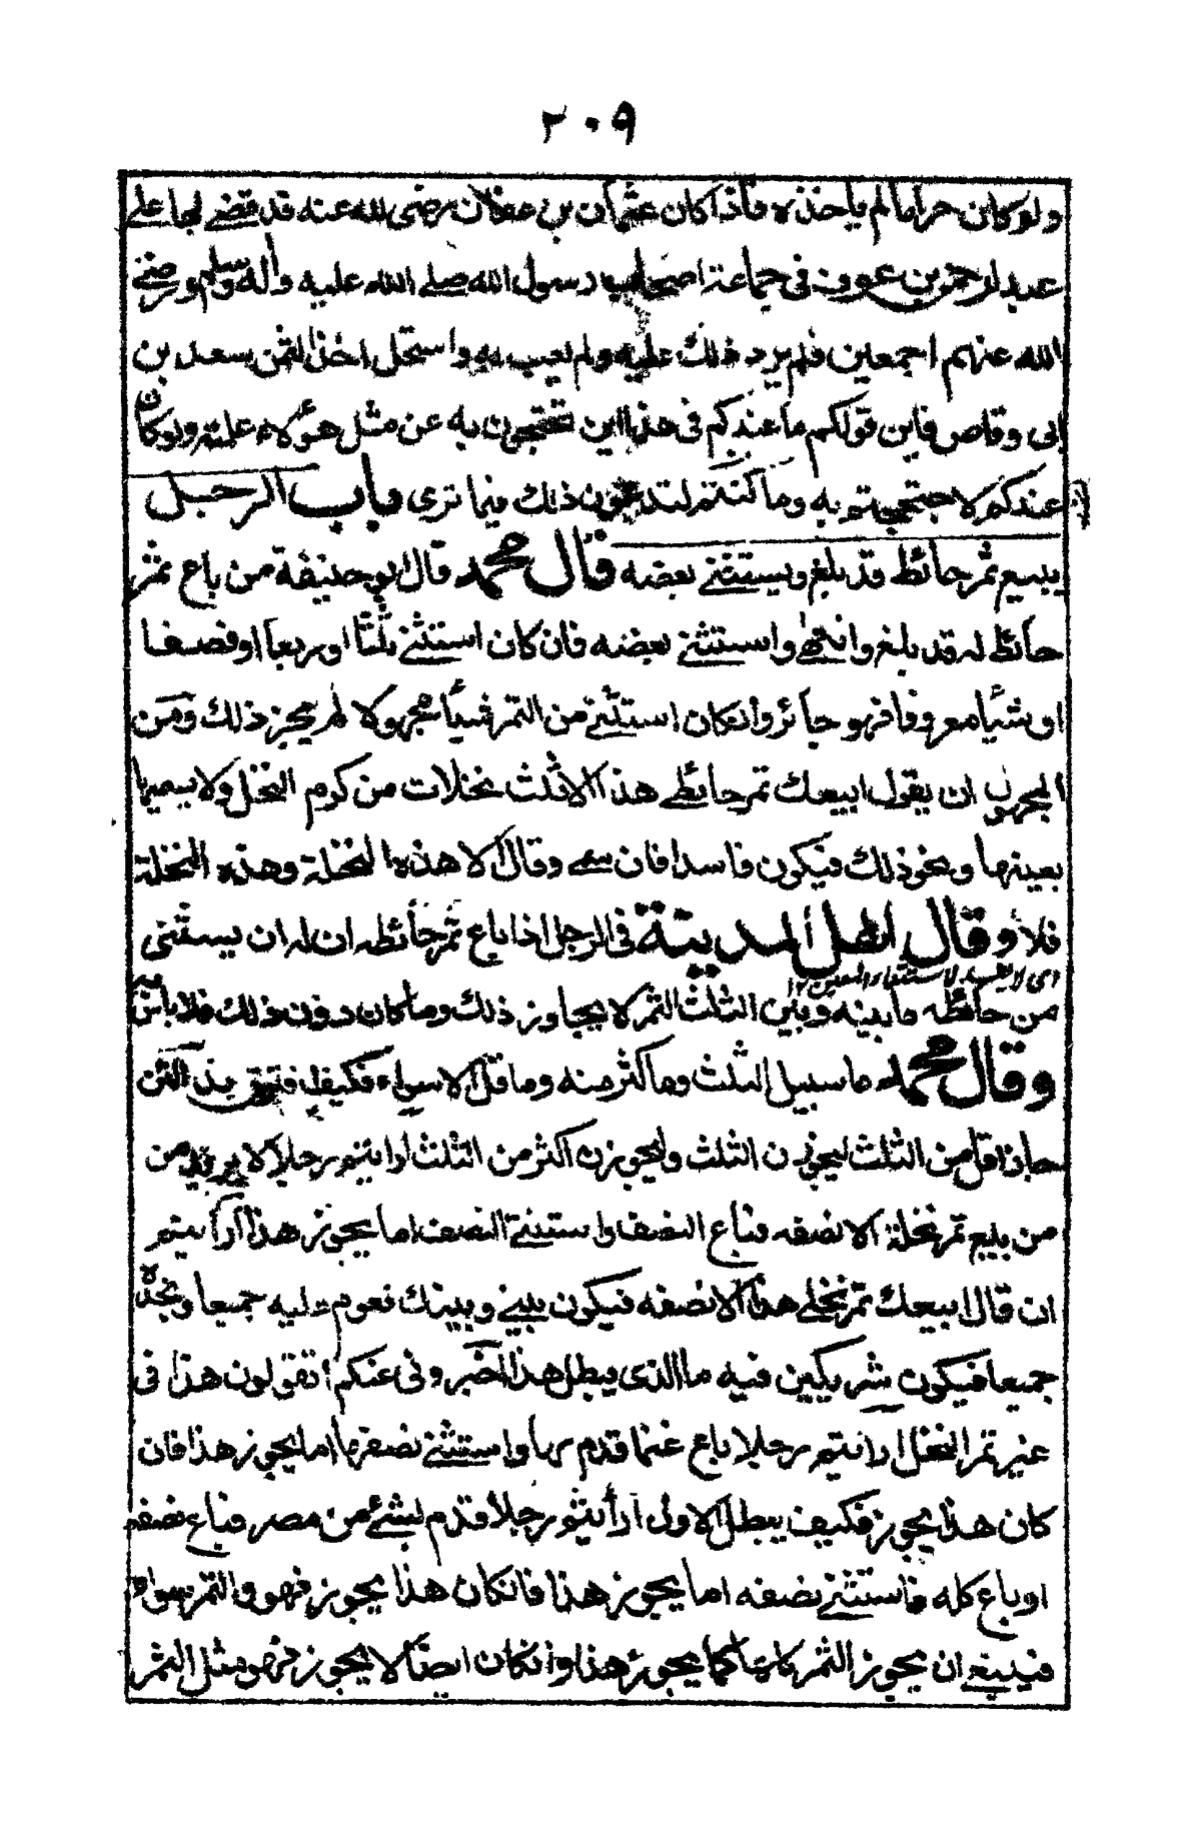 ٢٠٩
ولو كان حراما لم ياخذه فاذا كان عثمان بن عفان رضى الله عنه قد قضے لها على
عبد الرحمن بن عوف فى جماعة اصحاب رسول الله صلے الله عليه وأله وسلم ورضے
الله عنهم اجمعين فلم يرد ذلك عليه ولم يعب به واستحل اخذ الثمن سعد بن
ابى وقاص فاين قولكم ما عندكم فى هذا اين تحتجون به عن مثل هؤلاء علته ولو كان
عندكم لاحتججتم به وما كنتم لتدعون ذلك فيما نرى باب الرجل
يبيع ثمر حائط قد بلغ ويستثنے بعضه قال محمد قال ابو حنيفة من باع ثمر
حائط له قد بلغ وانتهے واستثنے بعضه فان كان استثنے ثلثا او ربعا او نصفا
او شيأ معروفا فهو جائز وانكان استثنے من الثمر شيأ مجهولا لم يجز ذلك ومن
المجهول ان يقول ابيعك ثمر حائطے هذا الا ثلث نخلات من كرم النخل ولا يسميها
بعينها ونحو ذلك فيكون فاسدا فان سمے وقال الا هذه النخلة وهذه النخلة
فلا وقال اهل المدينة فى الرجل اذا باع ثمر حائطه ان له ان يستثنى
من حائطه ما بينه وبين الثلث الثمر لا يجاوز ذلك وما كان دون ذلك فلا باس
وقال محمد ما سبيل الثلث وما اكثر منه وما قل الا سواء فكيف فتوى بذا لئن
جاز اقل من الثلث ليجوزن الثلث وليجوزن اكثر من الثلث ارايتم رجلا لا يريد من
من بيع ثمر نخلة الا نصفه فباع النصف واستثنے النصف اما يجوز هذا ارأيتم
ان قال ابيعك ثمر نخلے هذا الا نصفه فيكون بينے وبينك نعوم عليه جميعا ونجذه
جميعا فيكون شريكين فيه ما الذى يبطل هذا اخبرونى عنكم أ تقولون هذا فى
غير ثمر النخل ارايتم رجلا باع غنما قدم بها واستثنے نصفها أما يجوز هذا فان
كان هذا يجوز فكيف يبطل الاول أرأيتم رجلا قدم بشئ من مصر فباع نصفه
او باع كله فاستثنے نصفه اما يجوز هذا فانكان هذا يجوز فهو والثمر سواء
فينبغے ان يجوز الثمر كما يجوز هذا وانكان ايضا لا يجوز فهو مثل الثمر